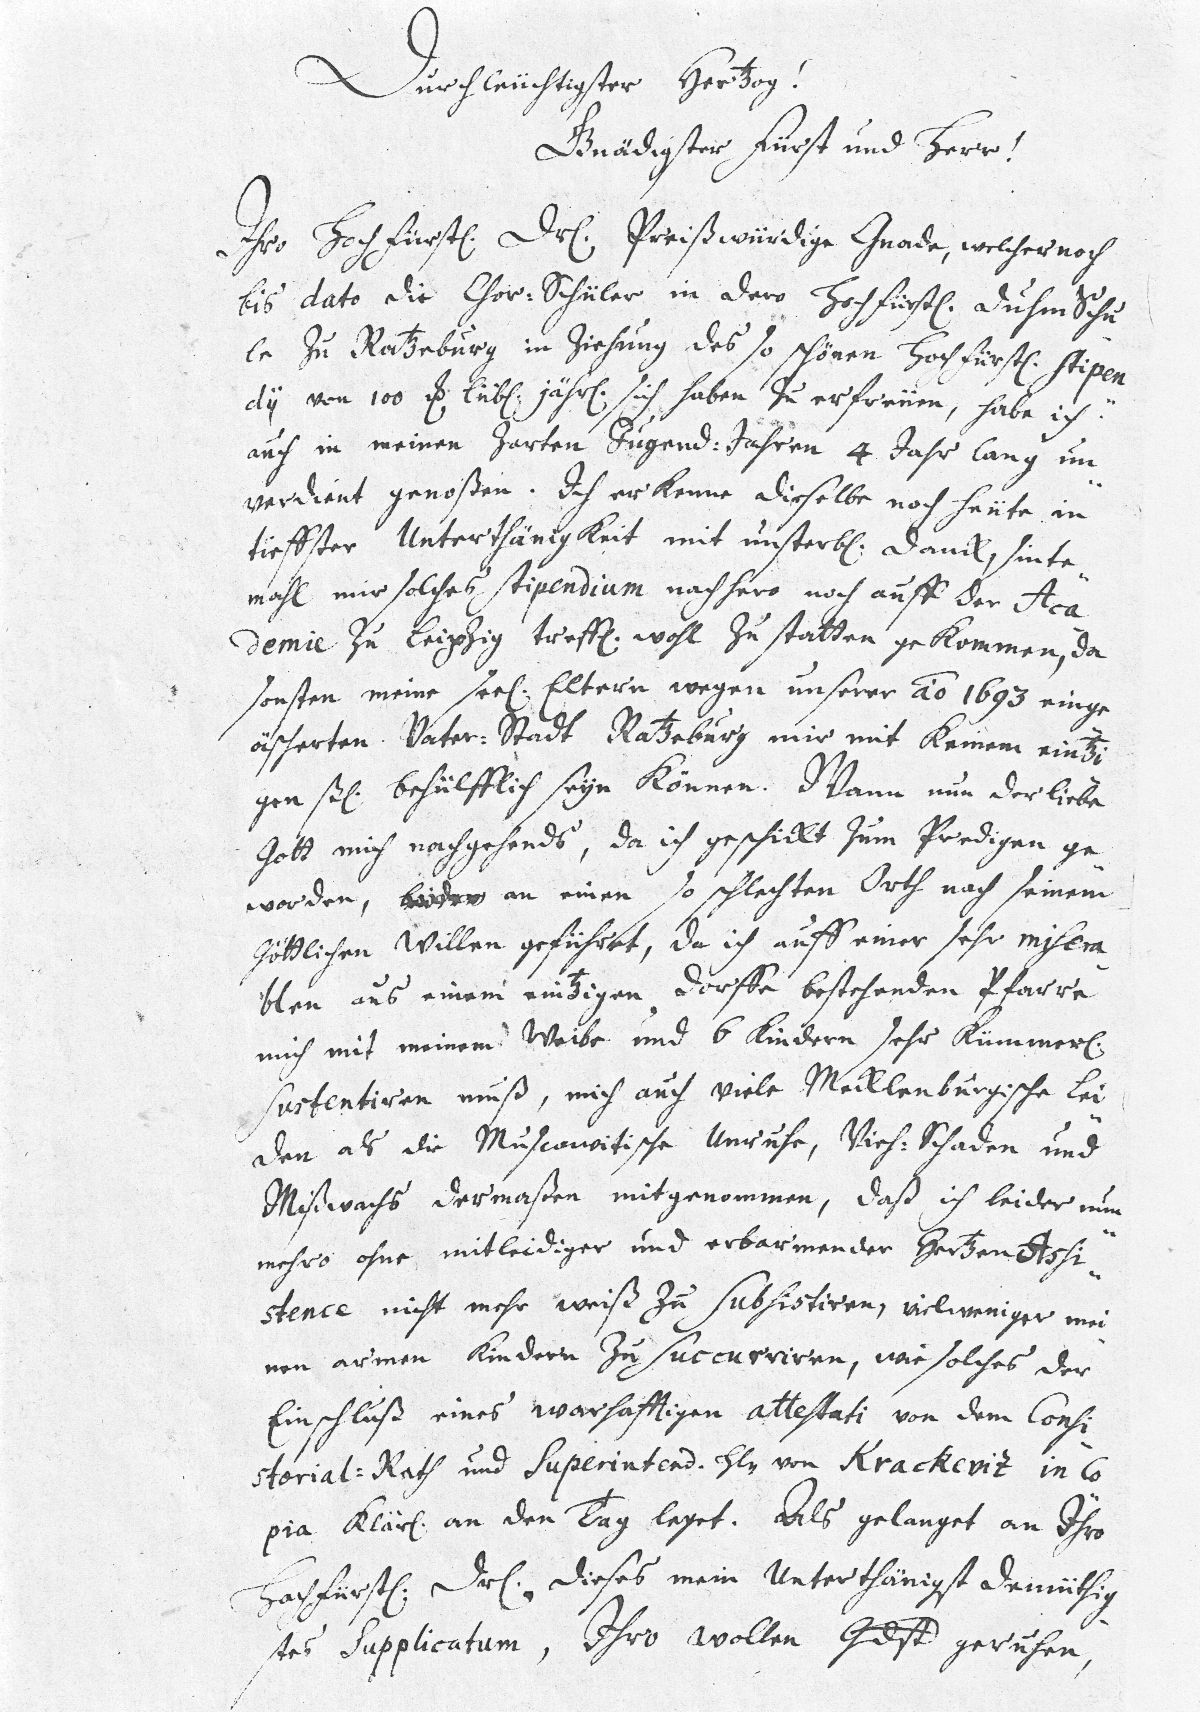 Durchleüchtigster Hertzog!
Gnädigster Fürst und Herr!
Ihro Hochfürstl. Drl. Preißwürdige Gnade, welcher noch
bis dato die Chor-Schüler in dero Hochfürstl. Duhm Schu
le zu Ratzeburg in Ziehung des so schönen Hochfürstl. stipen
dij von 100 lübl. jährl. sich haben zu erfreüen, habe ich
auch in meinen zarten Jugend-Jahren 4 Jahr lang un
verdient genoßen. Ich erkenne dieselbe noch heüte in
tieffster Unterthänigkeit mit unsterbl. Danck, sinte
mahl mir solches stipendium nachhero noch auff der Aca
demie zu Leipzig treffl. wohl zu statten gekommen, da
sonsten meine seel. Eltern wegen unserer ao 1693 einge
äscherten Vater-Stadt Ratzeburg mir mit keinem eintzi
gen ßl. behülfflich seyn können. Wann nun der liebe
Gott mich nachgehends, da ich geschickt zum Predigen ge
worden, an einen so schlechten Orth nach seinem
Göttlichen Willen geführet, da ich auff einer sehr misera
blen aus einem eintzigen Dorffe bestehenden Pfarre
mich mit meinem Weibe und 6 Kindern sehr kümmerl.
sustentiren muß, mich auch viele Mecklenburgische Lei
den als die Muscowitische Unruhe, Vieh-Schaden und
Mißwachs dermaßen mitgenommen, daß ich leider nun
mehro ohne mitleidiger und erbarmender Hertzen Assi
stence nicht mehr weiß zu subsistiren, vielweniger mei
nen armen Kindern zu succurriren, wie solches der
Einschluß eines warhafftigen attestati von dem Consi
storial-Rath und Superintend. Hln von Krackeviz in Co
pia klärl. an den Tag leget. Als gelanget an Ihro
Hochfürstl. Drl. dieses mein Unterthänigst demüthig
stes Supplicatum, Ihro wollen Gdst geruhen,